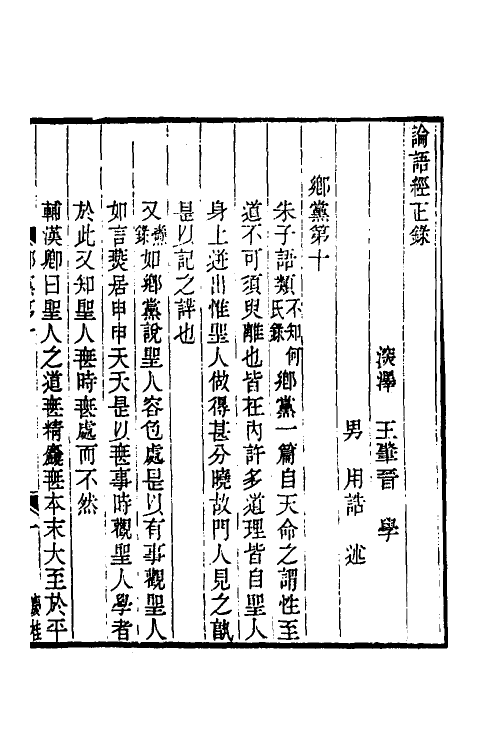 論語經正錄
深澤　王肇晉　學
男　用誥　述
鄉黨第十
朱子語類不知何氏錄鄉黨一篇自天命之謂性至
道不可須臾離也皆在內許多道理皆自聖人
身上迸出惟聖人做得甚分曉故門人見之孰
是以記之詳也
又燾錄如鄉黨說聖人容色處是以有事觀聖人
如言燕居申申夭夭是以無事時觀聖人學者
於此又知聖人無時無處而不然
輔漢卿曰聖人之道無精麤無本末大至於平